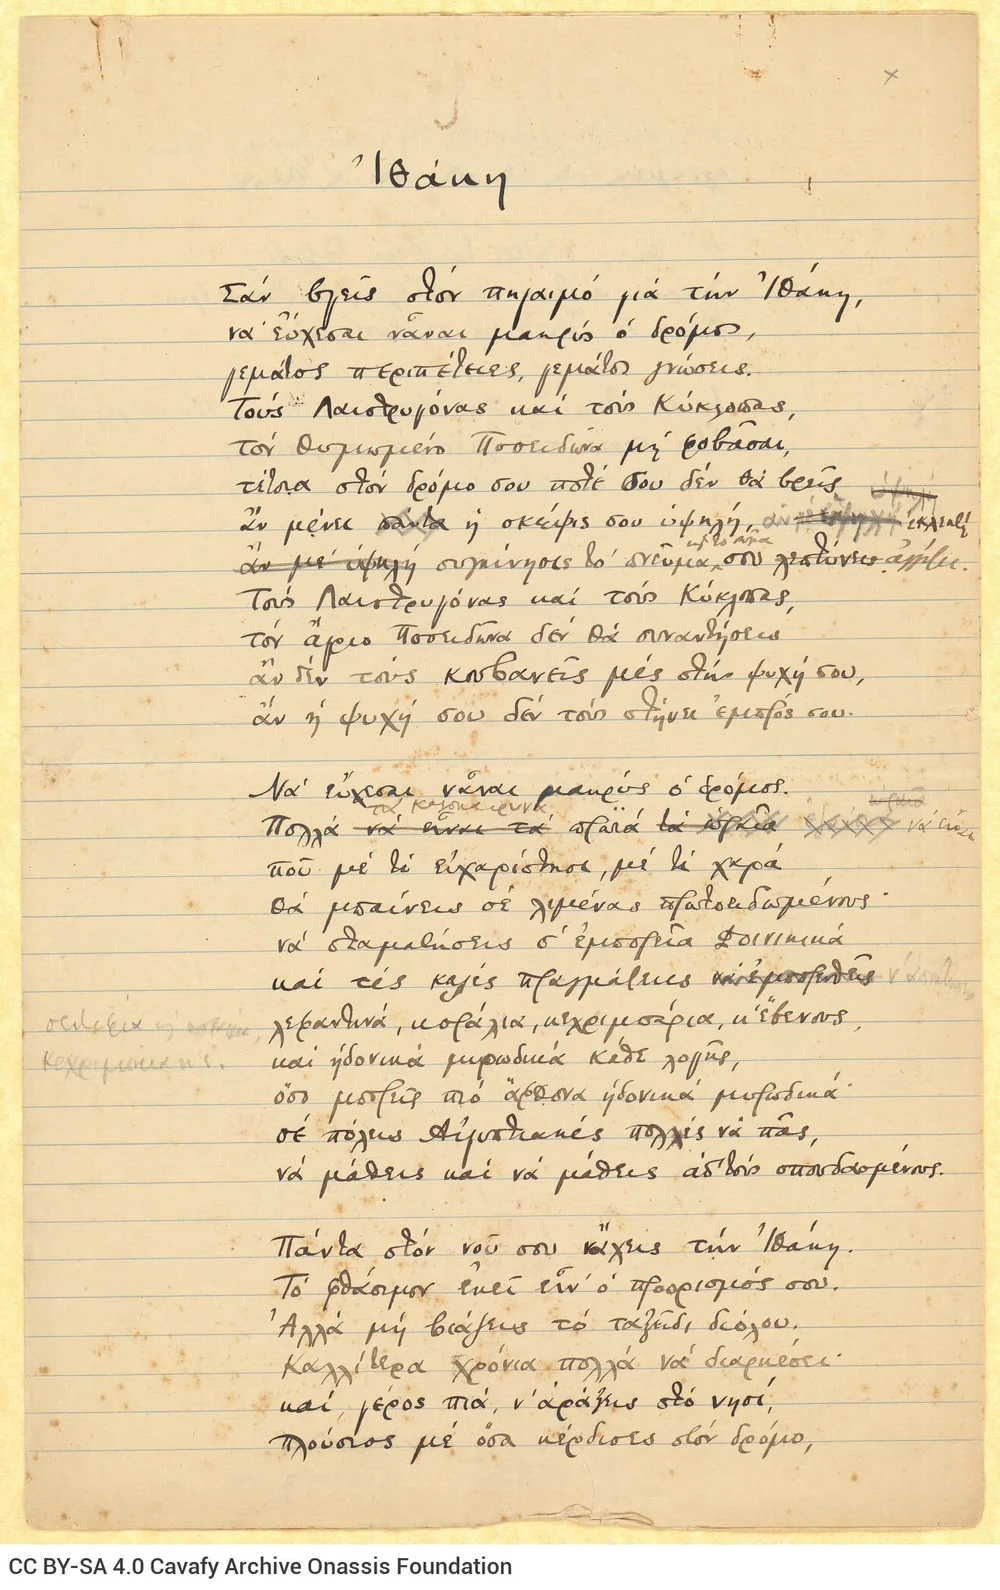 Ἰθάκη
Σάν βγεῖς στόν πηγαιμό γιά τήν Ἰθάκη,
νά εὔχεσαι νἆναι μακρύς ὁ δρόμος,
γεμάτος περιπέτειες, γεμάτος γνώσεις.
Τούς Λαιστρυγόνας καί τούς Κύκλωπας,
τόν θυμωμένο Ποσειδῶνα μή φοβᾶσαι,
τέτοια στόν δρόμο σου ποτέ σου δέν θά βρεῖς
ὑψηλή
ἄν μένει πάντα ἡ σκέψις σου ὑψηλή, ἄν ἐκλεκτή
κ' τό σῶμα
ἄν μέ ὑψηλή συγκίνησις τό πνεῦμα σου λεπτύνει ἀγγίζει.
Τούς Λαιστρυγόνας καί τούς Κύκλωπας,
τόν ἄγριο Ποσειδῶνα δέν θά συναντήσεις
ἄν δέν τούς κουβανεῖς μές στήν ψυχή σου,
ἄν ἡ ψυχή σου δέν τούς στήνει ἐμπρός σου.
Νά εὔχεσαι νἆναι μακρύς ὁ δρόμος.
τά καλοκαιρινά
Πολλά νά εἶναι τά πρωϊά τά ὡραῖα νά εἶναι
ποῦ μέ τί εὐχαρίστησι, μέ τί χαρά
θά μπαίνεις σέ λιμένας πρωτοειδωμένους·
νά σταματήσεις σ' ἐμπορεῖα Φοινικικά
καί τές καλές πραγμάτειες νά ἐμπορευθεῖς ν' ἀποκτήσεις
σεντέφια
λεφαντινά, κοράλια, κεχριμπάρια, κ' ἔβενους,
κεχριμπάρια κ' ἔ.
καί ἡδονικά μυρωδικά κάθε λογῆς,
ὅσο μπορεῖς πιό ἄφθονα ἡδονικά μυρωδικά·
σέ πόλεις Αἰγυπτιακές πολλές νά πᾶς,
νά μάθεις καί νά μάθεις ἀπ' τούς σπουδασμένους.
Πάντα στόν νοῦ σου νἄχεις τήν Ἰθάκη.
Τό φθάσιμον ἐκεῖ εἶν' ὁ προορισμός σου.
Ἀλλά μή βιάζεις τό ταξεῖδι διόλου.
Καλλίτερα χρόνια πολλά νά διαρκέσει·
καί, γέρος πιά, ν' ἀράξεις στό νησί,
πλούσιος μέ ὅσα κέρδισες στόν δρόμο,
CC BY-SA 4.0 Cavafy Archive Onassis Foundation